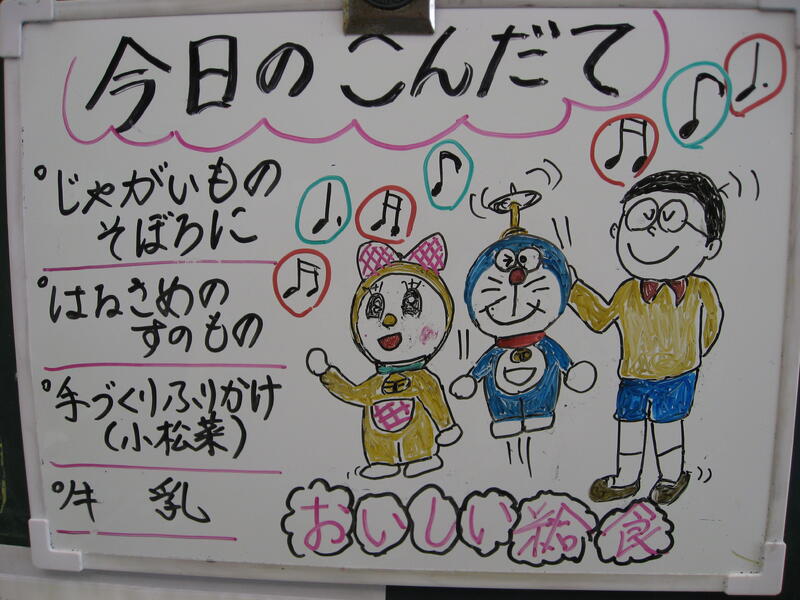 今日のこんだて
°じゃがいもの
そぼろに
°はるさめの
すのもの
°手づくりふりかけ
(小松菜)
°牛 乳
おいしい給食